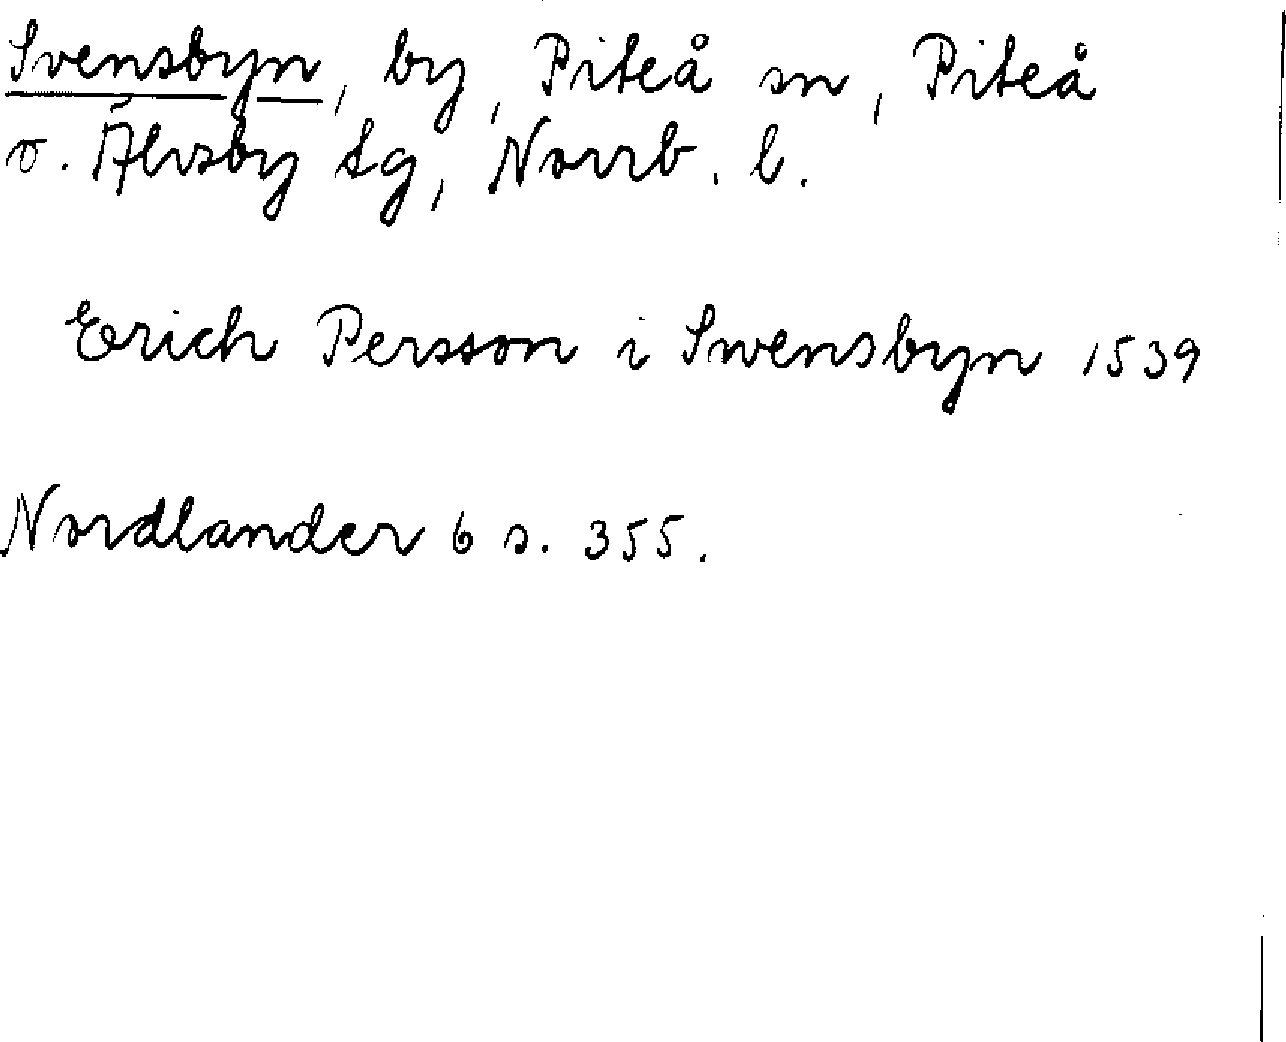 Svensbyn, by, Piteå sn, Piteå
o. Älvsby tg, Norrb. l.
Erich Persson i Swensbyn 1539
Nordlander 6 s. 355.